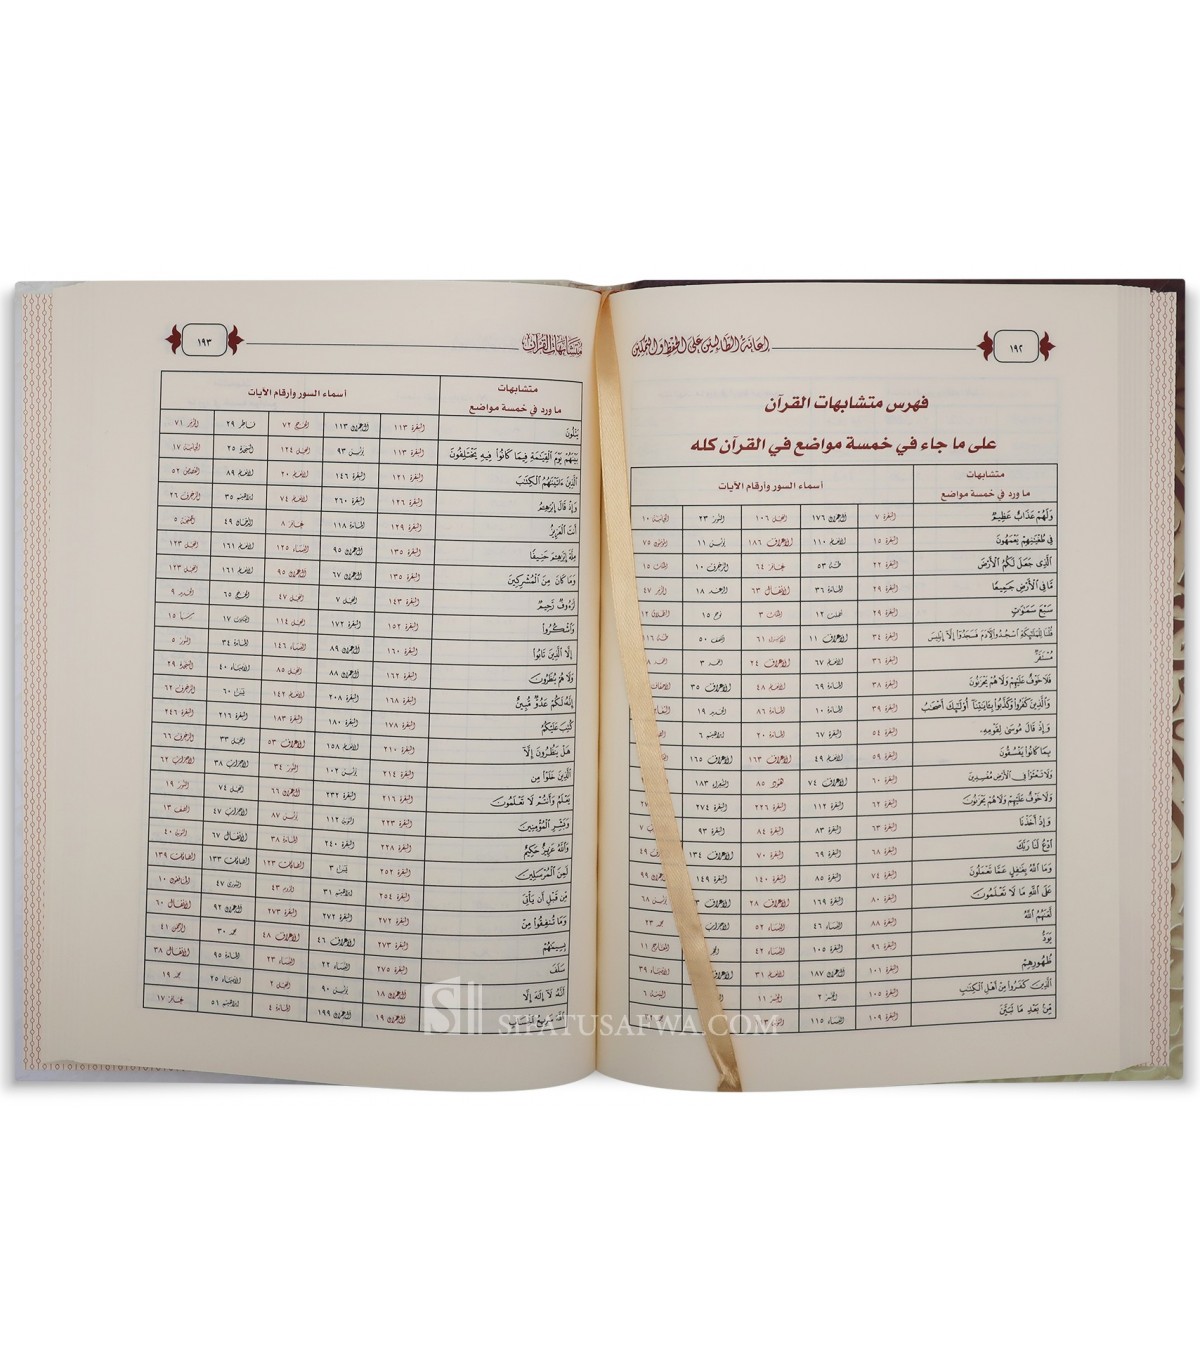 ١٩٢
إعانة الطالبين على الحفظ والتمكين
فهرس متشابهات القرآن
على ما جاء في خمسة مواضع في القرآن كله
متشابهات
ما ورد في خمسة مواضع
أسماء السور وأرقام الآيات
وَلَهُمْ عَذَابٌ عَظِيمٌ البقرة ٧ آل عمران ١٧٦ النحل ١٠٦ النور ٢٣ الجاثية ١٠
فِي طُغْيَٰنِهِمْ يَعْمَهُونَ البقرة ١٥ الأنعام ١١٠ الأعراف ١٨٦ يونس ١١ المؤمنون ٧٥
ٱلَّذِي جَعَلَ لَكُمُ ٱلْأَرْضَ البقرة ٢٢ طه ٥٣ غافر ٦٤ الزخرف ١٠ الملك ١٥
مَّا فِي ٱلْأَرْضِ جَمِيعًا البقرة ٢٩ المائدة ٣٦ الأنفال ٦٣ الرعد ١٨ الزمر ٤٧
سَبْعَ سَمَٰوَٰتٍ البقرة ٢٩ فصلت ١٢ الملك ٣ نوح ١٥ الطلاق ١٢
البقرة ٣٤ الأعراف ١١ الإسراء ٦١ الكهف ٥٠ طه ١١٦
البقرة ٣٦ الأنعام ٦٧ الأعراف ٢٤
فَلَا خَوْفٌ عَلَيْهِمْ وَلَا هُمْ يَحْزَنُونَ البقرة ٣٨ المائدة ٦٩ الأنعام ٤٨ الأعراف ٣٥
وَٱلَّذِينَ كَفَرُوا۟ وَكَذَّبُوا۟ بِـَٔايَٰتِنَآ أُو۟لَٰٓئِكَ أَصْحَٰبُ البقرة ٣٩ المائدة ١٠ المائدة ٨٦ الحديد ١٩
وَإِذْ قَالَ مُوسَىٰ لِقَوْمِهِۦ البقرة ٥٤ البقرة ٦٧ المائدة ٢٠ إبراهيم ٦
بِمَا كَانُوا۟ يَفْسُقُونَ البقرة ٥٩ الأنعام ٤٩ الأعراف ١٦٣ الأعراف ١٦٥
وَلَا تَعْثَوْا۟ فِي ٱلْأَرْضِ مُفْسِدِينَ البقرة ٦٠ الأعراف ٧٤ هود ٨٥ الشعراء ١٨٣
وَلَا خَوْفٌ عَلَيْهِمْ وَلَا هُمْ يَحْزَنُونَ البقرة ٦٢ البقرة ١١٢ البقرة ٢٧٤
وَإِذْ أَخَذْنَا البقرة ٦٣ البقرة ٨٣ البقرة ٨٤ البقرة ٩٣
ٱدْعُ لَنَا رَبَّكَ البقرة ٦٨ البقرة ٦٩ البقرة ٧٠ الأعراف ١٣٤
وَمَا ٱللَّهُ بِغَٰفِلٍ عَمَّا تَعْمَلُونَ البقرة ٧٤ البقرة ٨٥ البقرة ١٤٠ البقرة ١٤٩
عَلَى ٱللَّهِ مَا لَا تَعْلَمُونَ البقرة ٨٠ البقرة ١٦٩ الأعراف ٢٨ يونس ٦٨
لَعَنَهُمُ ٱللَّهُ البقرة ٨٨ النساء ٤٦ النساء ٥٢ محمد ٢٣
البقرة ٩٦ البقرة ١٠٥ النساء ٤٢ المعارج ١١
ظُهُورِهِمْ البقرة ١٠١ آل عمران ١٨٧ الأنعام ٣١ الأنبياء ٣٩
ٱلَّذِينَ كَفَرُوا۟ مِنْ أَهْلِ ٱلْكِتَٰبِ البقرة ١٠٥ الحشر ٢ الحشر ١١ البينة ٦
مِّنۢ بَعْدِ مَا تَبَيَّنَ البقرة ١٠٩ النساء ١١٥
متشابهات القرآن
١٩٣
متشابهات
ما ورد في خمسة مواضع
أسماء السور وأرقام الآيات
يَتْلُونَ البقرة ١١٣ آل عمران ١١٣ الحج ٧٢ فاطر ٢٩ الزمر ٧١
بَيْنَهُمْ يَوْمَ ٱلْقِيَٰمَةِ فِيمَا كَانُوا۟ فِيهِ يَخْتَلِفُونَ البقرة ١١٣ يونس ٩٣ النحل ١٢٤ السجدة ٢٥ الجاثية ١٧
ٱلَّذِينَ ءَاتَيْنَٰهُمُ ٱلْكِتَٰبَ البقرة ١٢١ البقرة ١٤٦ الأنعام ٢٠ الأنعام ٨٩ القصص ٥٢
وَإِذْ قَالَ إِبْرَٰهِيمُ البقرة ١٢٦ البقرة ٢٦٠ الأنعام ٧٤ إبراهيم ٣٥ الزخرف ٢٦
أَنتَ ٱلْعَزِيزُ البقرة ١٢٩ المائدة ١١٨ غافر ٨ الدخان ٤٩ الممتحنة ٥
مِلَّةَ إِبْرَٰهِيمَ حَنِيفًا البقرة ١٣٥ آل عمران ٩٥ النساء ١٢٥ الأنعام ١٦١ النحل ١٢٣
وَمَا كَانَ مِنَ ٱلْمُشْرِكِينَ البقرة ١٣٥ آل عمران ٦٧ آل عمران ٩٥ الأنعام ١٦١ النحل ١٢٣
لَرَءُوفٌ رَّحِيمٌ البقرة ١٤٣ النحل ٧ النحل ٤٧ الحج ٦٥ الحديد ٩
وَٱشْكُرُوا۟ البقرة ١٥٢ البقرة ١٧٢ النحل ١١٤ العنكبوت ١٧ سبأ ١٥
إِلَّا ٱلَّذِينَ تَابُوا۟ البقرة ١٦٠ آل عمران ٨٩ النساء ١٤٦ المائدة ٣٤ النور ٥
وَلَا هُمْ يُنظَرُونَ البقرة ١٦٢ آل عمران ٨٨ النحل ٨٥ الأنبياء ٤٠ السجدة ٢٩
إِنَّهُۥ لَكُمْ عَدُوٌّ مُّبِينٌ البقرة ١٦٨ البقرة ٢٠٨ الأنعام ١٤٢ يس ٦٠ الزخرف ٦٢
كُتِبَ عَلَيْكُمُ البقرة ١٧٨ البقرة ١٨٠ البقرة ١٨٣ البقرة ٢١٦ البقرة ٢٤٦
هَلْ يَنظُرُونَ إِلَّآ البقرة ٢١٠ الأنعام ١٥٨ الأعراف ٥٣ النحل ٣٣ الزخرف ٦٦
ٱلَّذِينَ خَلَوْا۟ مِن البقرة ٢١٤ يونس ١٠٢ النور ٣٤ الأحزاب ٣٨ الأحزاب ٦٢
يَعْلَمُ وَأَنتُمْ لَا تَعْلَمُونَ البقرة ٢١٦ البقرة ٢٣٢ آل عمران ٦٦ النحل ٧٤ النور ١٩
وَبَشِّرِ ٱلْمُؤْمِنِينَ البقرة ٢٢٣ التوبة ١١٢ يونس ٨٧ الأحزاب ٤٧ الصف ١٣
وَٱللَّهُ عَزِيزٌ حَكِيمٌ البقرة ٢٢٨ البقرة ٢٤٠ المائدة ٣٨ الأنفال ٦٧ التوبة ٤٠
لَمِنَ ٱلْمُرْسَلِينَ البقرة ٢٥٢ يس ٣ الصافات ١٢٣ الصافات ١٣٣ الصافات ١٣٩
مِّن قَبْلِ أَن يَأْتِيَ البقرة ٢٥٤ إبراهيم ٣١ الروم ٤٣ الشورى ٤٧ المنافقون ١٠
وَمَا تُنفِقُوا۟ مِنْ البقرة ٢٧٢ البقرة ٢٧٢ البقرة ٢٧٣ آل عمران ٩٢ الأنفال ٦٠
بِسِيمَٰهُمْ البقرة ٢٧٣ الأعراف ٤٦ الأعراف ٤٨ محمد ٣٠ الرحمن ٤١
سَلَفَ البقرة ٢٧٥ النساء ٢٢ النساء ٢٣ المائدة ٩٥ الأنفال ٣٨
أَنَّهُۥ لَآ إِلَٰهَ إِلَّا آل عمران ١٨ يونس ٩٠ النحل ٢ الأنبياء ٢٥ محمد ١٩
آل عمران ١٩ آل عمران ١٩٩ المائدة ٤ إبراهيم ٥١ غافر ١٧
SIFATUSAFWA.COM